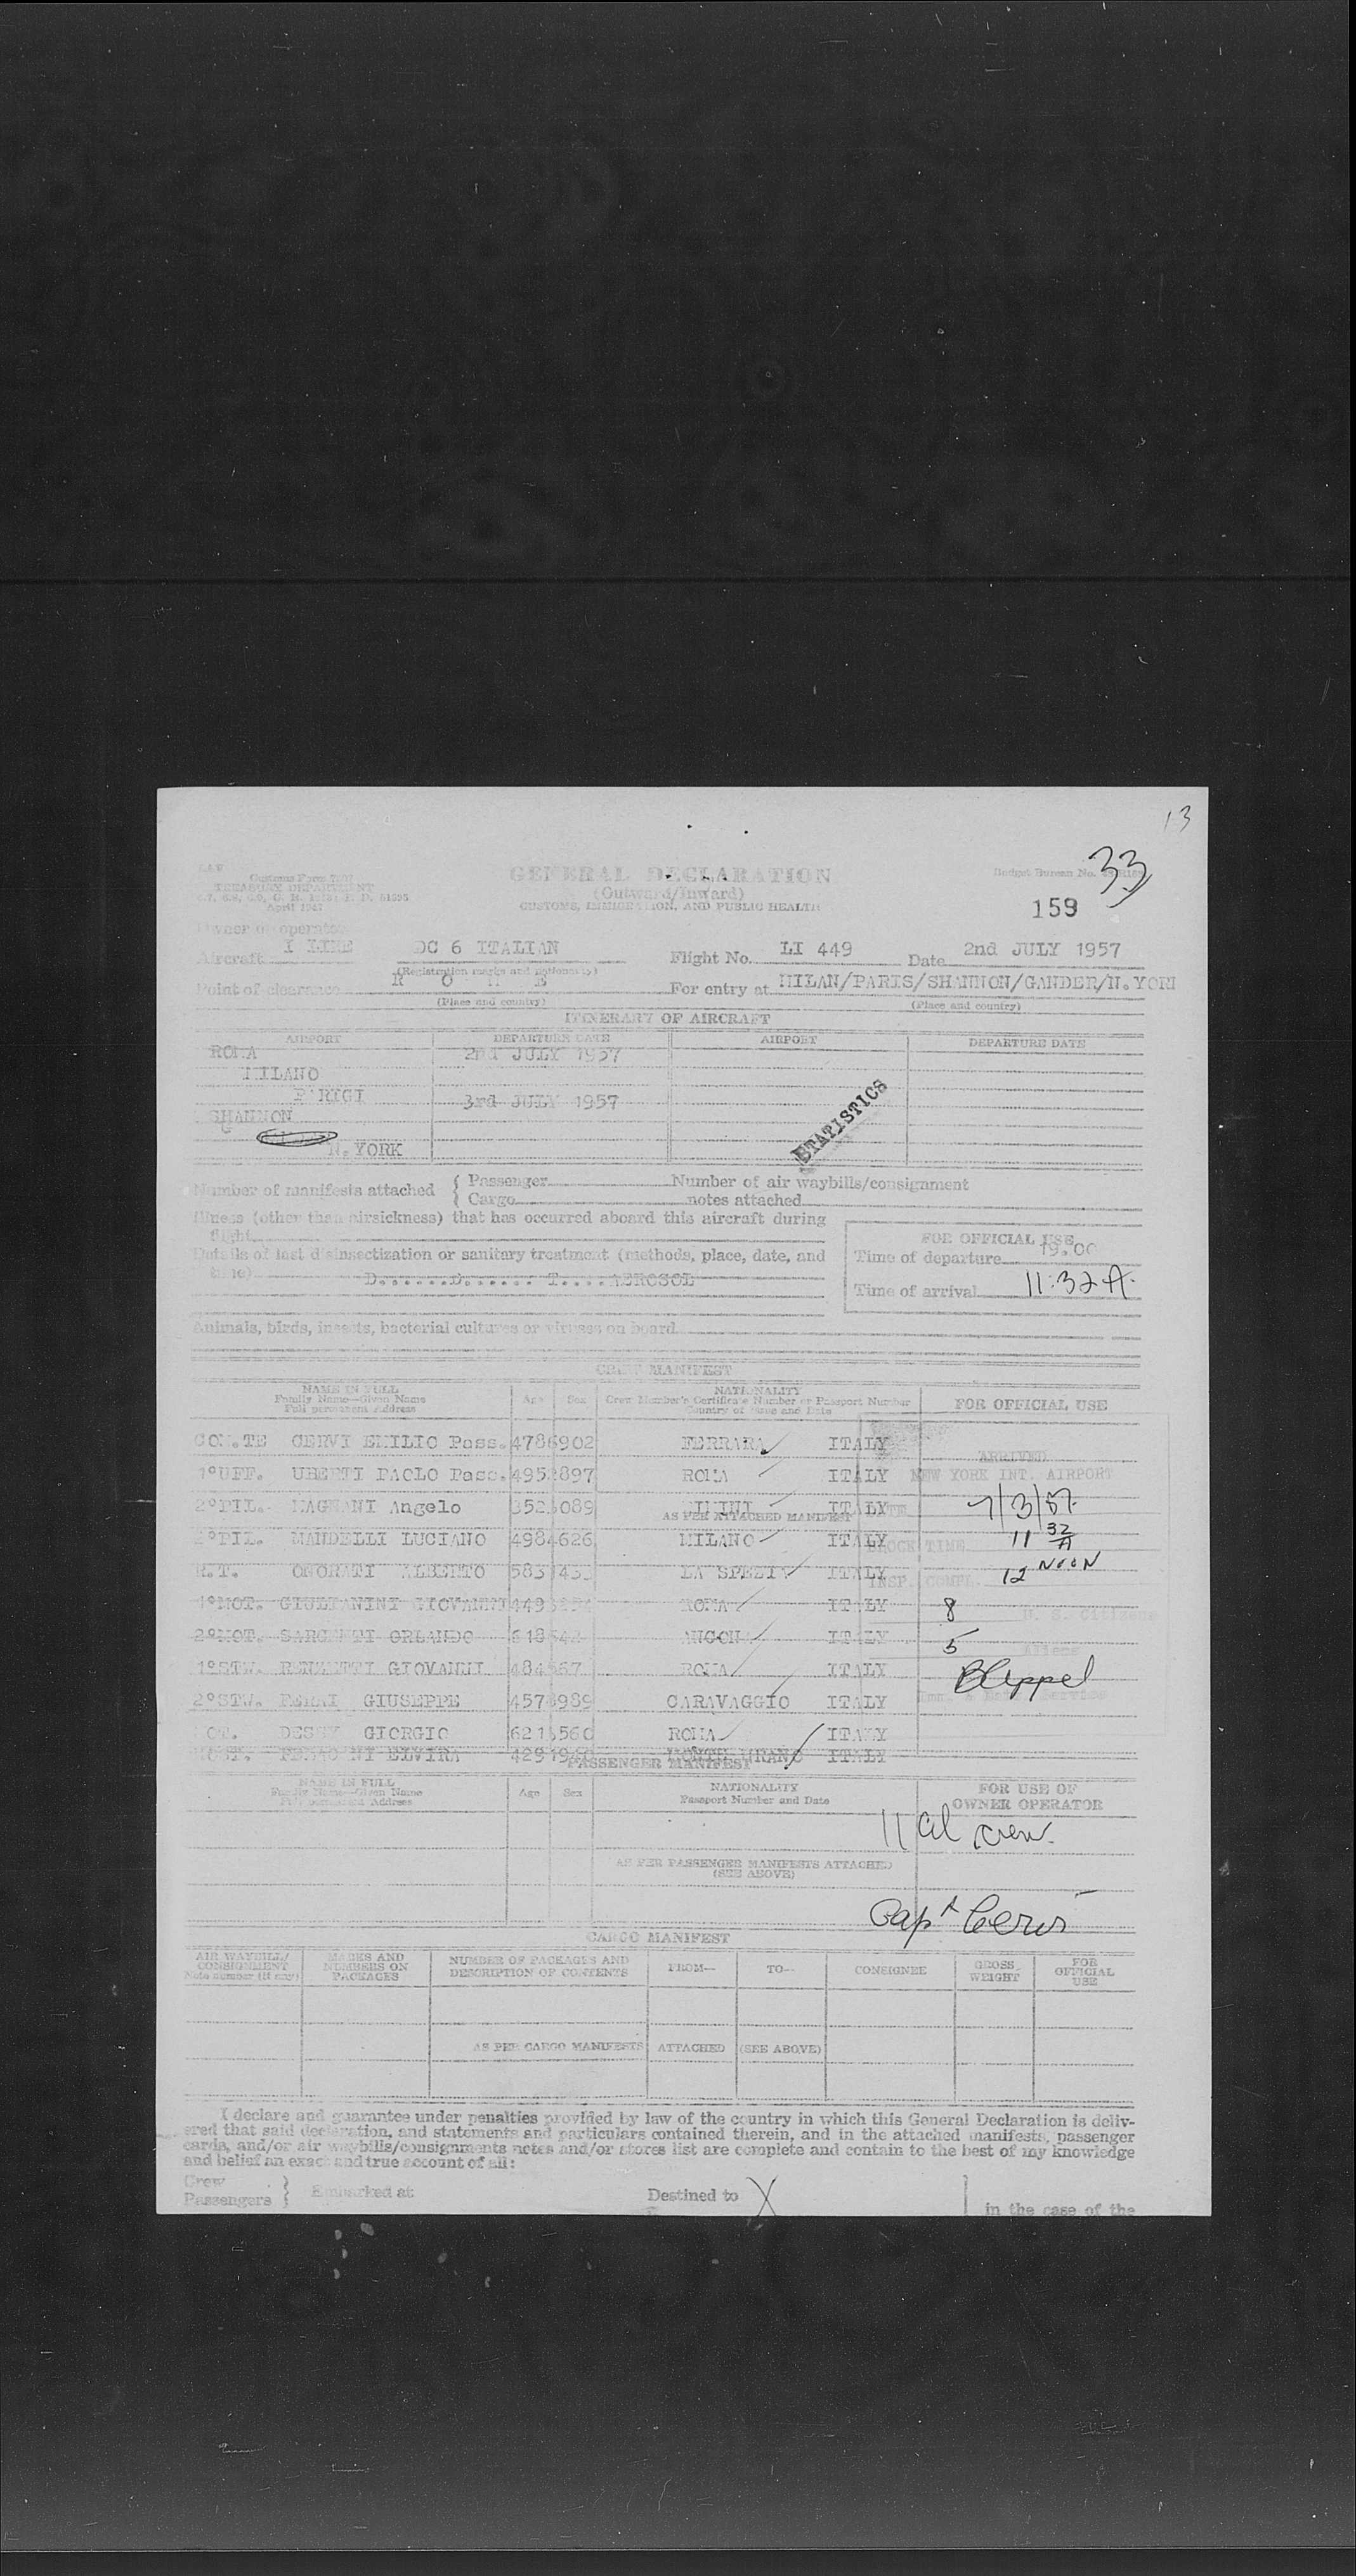 13
33
Customs Form 7507
TREASURY DEPARTMENT
April 1947
GENERAL DECLARATION
(Outward/Inward)
CUSTOMS, IMMIGRATION, AND PUBLIC HEALTH
Budget Bureau No.
159
Owner or operator
Aircraft I LINE DC 6 ITALIAN Flight No. LI 449 Date 2nd JULY 1957
(Registration marks and nationality)
Point of clearance R O M E For entry at MILAN/PARIS/SHANNON/GANDER/N.YORK
(Place and country) (Place and country)
ITINERARY OF AIRCRAFT
AIRPORT DEPARTURE DATE AIRPORT DEPARTURE DATE
ROMA 2nd JULY 1957
MILANO
PARIGI 3rd JULY 1957
SHANNON
N. YORK
STATISTICS
Number of manifests attached { Passenger Number of air waybills/consignment
Cargo notes attached
Illness (other than airsickness) that has occurred aboard this aircraft during
flight
Details of last disinsectization or sanitary treatment (methods, place, date, and
time) D.......D....... T.....AEROSOL
FOR OFFICIAL USE
Time of departure 19.00
Time of arrival 11:32 A.
Animals, birds, insects, bacterial cultures or viruses on board
CREW MANIFEST
NAME IN FULL
Family Name—Given Name
Full permanent Address
Age Sex
NATIONALITY
Crew Member's Certificate Number or Passport Number
Country of Issue and Date
FOR OFFICIAL USE
COM.TE CERVI EMILIO Pass. 4786902 FERRARA ITALY
1°UFF. UBERTI PAOLO Pass. 495 897 ROMA ITALY
2°PIL. MAGNANI Angelo 352 089 RIMINI ITALY
AS PER ATTACHED MANIFEST
2°PIL. MANDELLI LUCIANO 4984626 MILANO ITALY
R.T. ONORATI ALBERTO 583 LA SPEZIA ITALY
1°MOT. GIOVANNI 449 ROMA ITALY
2°MOT. ORLANDO 618 ANCONA ITALY
1°STW. GIOVANNI 484 ROMA ITALY
2°STW. GIUSEPPE 457 989 CARAVAGGIO ITALY
DESSY GIORGIO 621 560 ROMA ITALY
ELVIRA 429 ITALY
ARRIVED
NEW YORK INT. AIRPORT
DATE 7/3/57
BLOCK TIME 11 32/A
INSP. COMPL. 12 NOON
8 U. S. Citizens
5 Aliens
PASSENGER MANIFEST
NAME IN FULL
Family Name—Given Name
Full permanent Address
Age Sex
NATIONALITY
Passport Number and Date
FOR USE OF
OWNER OPERATOR
11 al crew.
AS PER PASSENGER MANIFESTS ATTACHED
(SEE ABOVE)
Capt Cervi
CARGO MANIFEST
AIR WAYBILL/
CONSIGNMENT
Note number (if any)
MARKS AND
NUMBERS ON
PACKAGES
NUMBER OF PACKAGES AND
DESCRIPTION OF CONTENTS
FROM— TO— CONSIGNEE
GROSS
WEIGHT
FOR
OFFICIAL
USE
AS PER CARGO MANIFESTS ATTACHED (SEE ABOVE)
I declare and guarantee under penalties provided by law of the country in which this General Declaration is deliv-
ered that said declaration, and statements and particulars contained therein, and in the attached manifests, passenger
cards, and/or air waybills/consignments notes and/or stores list are complete and contain to the best of my knowledge
and belief an exact and true account of all:
Crew
Passengers } Embarked at Destined to X in the case of the